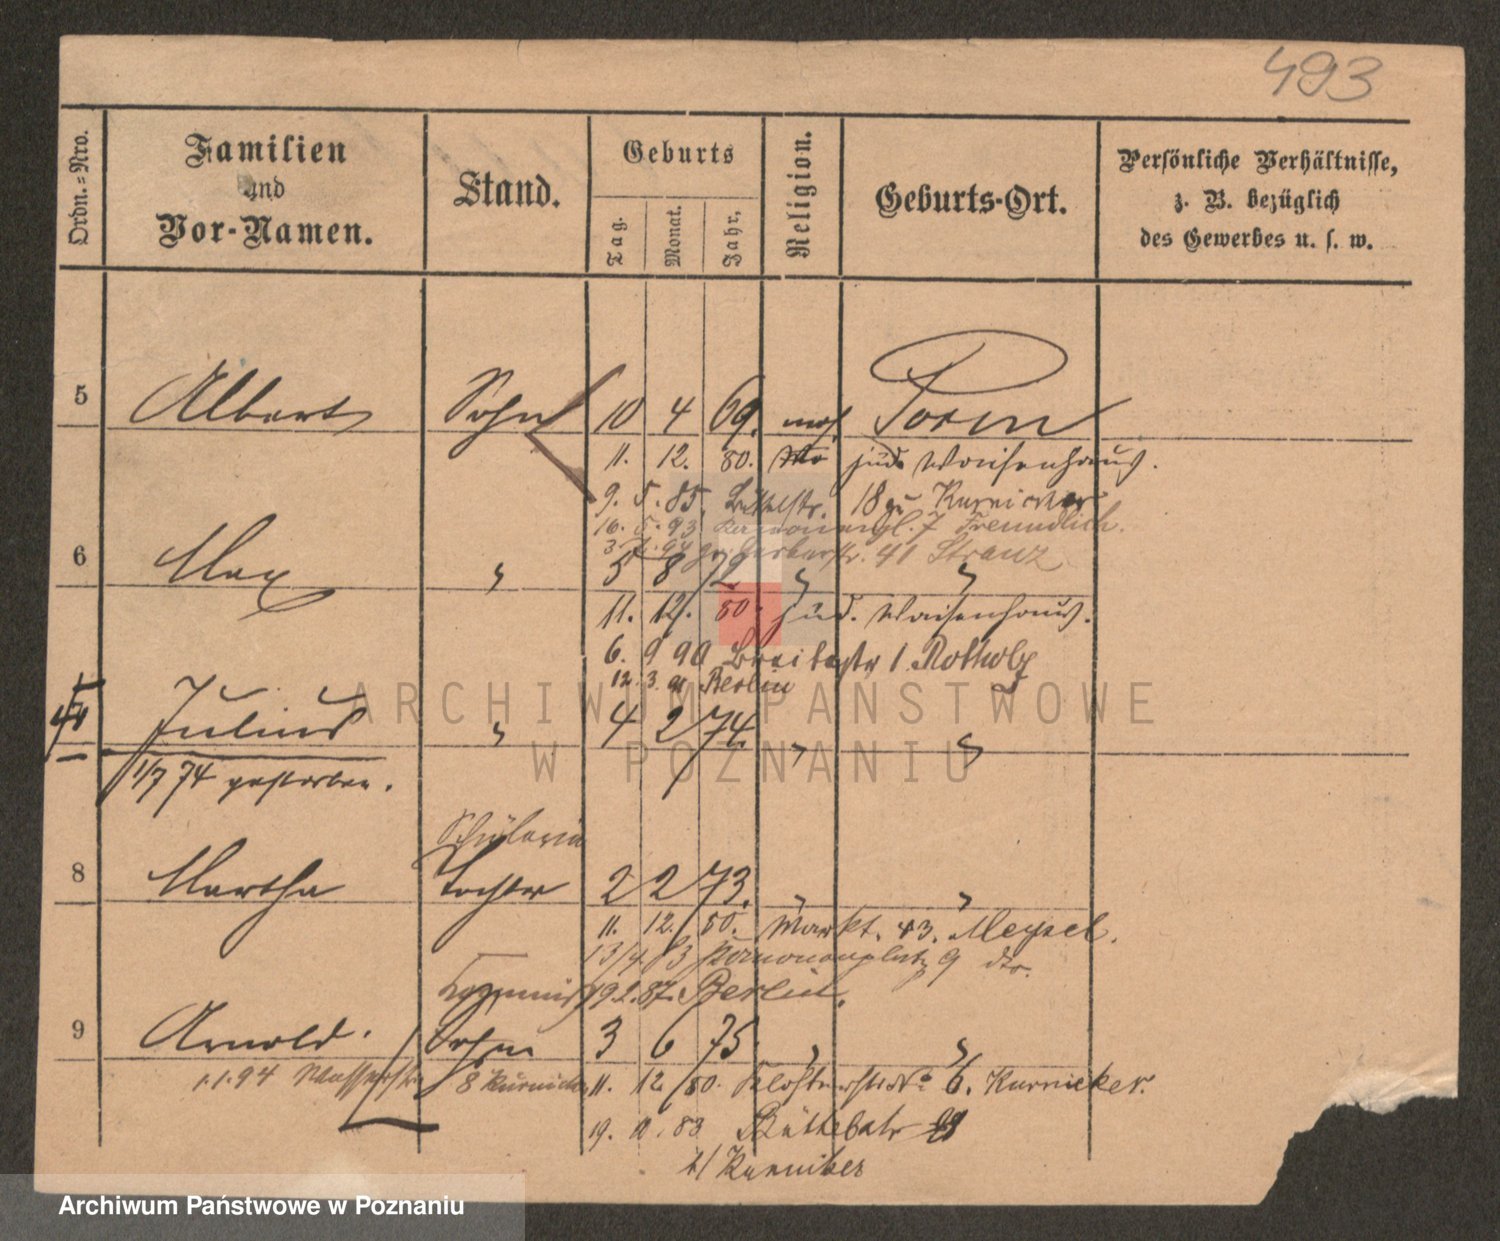 493
Ordn.=Nro.
Familien
und
Vor-Namen.
Stand.
Geburts
Tag.
Monat.
Jahr,
Religion.
Geburts-Ort.
Persönliche Verhältnisse,
z. B. bezüglich
des Gewerbes u. s. w.
5 Albert Sohn 10 4 69. mos. Posen
11. 12. 80. jüd. Waisenhaus.
9. 5. 85. Büttelstr. 18 zu Kurnicker
16. 5. 93 7 Freundlich.
3. 94 gr. Gerberstr. 41 Stranz
6 Max " 5 8 72 " "
11. 12. 80. jüd. Waisenhaus.
6. 9 90 Breitestr 1 Rothholz
12. 3. 91 Berlin
Julius " 4 2 74. " "
1/7 74 gestorben.
Schülerin
8 Martha Tochter 2 2 73. " "
11. 12. 80. Markt. 43. Meysel.
13/4 83 9 dto.
19. 2. 87. Berlin.
9 Arnold. Sohn 3 6 75 " "
1.1.94 Wasserstr 8 Kurnicker 11. 12. 80. Klosterstr No 6. Kurnicker.
19. 11. 83 Büttelstr
b/ Kurniker
ARCHIWUM PAŃSTWOWE
W POZNANIU
Archiwum Państwowe w Poznaniu